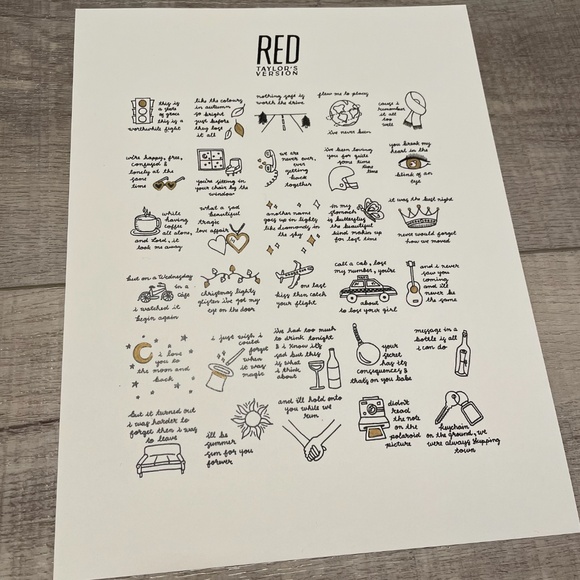 RED
TAYLOR'S
VERSION
this is
a state
of grace
this is a
worthwhile fight
like the colours
in autumn
so bright
just before
they lose
it all
nothing safe is
worth the drive
flew me to places
i've never been
'cause i
remember
it all
too
well
we're happy, free,
confused &
lonely at the
same
time
you're sitting in
your chair by the
window
we are
never ever,
ever
getting
back
together
i've been loving
you for quite
some time
time
time
you break my
heart in the
blink of an
eye
while
having
coffee
all alone,
and Lord, it
took me away
what a sad
beautiful
tragic
love affair
another name
goes up in lights
like diamonds in
the sky
in my
stomach
is butterflies
the beautiful
kind makes up
for lost time
it was the best night
never would forget
how we moved
but on a Wednesday
in a
cafe
i watched it
begin again
christmas lights
glisten i've got my
eye on the door
one last
kiss then catch
your flight
call a cab, lose
my number, you're
about
to lose your girl
and i never
saw you
coming
and i'll
never be
the same
i love
you to
the moon and
back
i just wish i
could
forget
when
it was
magic
i've had too much
to drink tonight
& i know it's
sad but this
is what
i think
about
your
secret
has its
consequences &
that's on you babe
message in a
bottle is all
i can do
but it turned out
i was harder to
forget than i was
to leave
i'll be
summer
sun for you
forever
and i'll hold onto
you while we
run
didn't
read
the note
on the
polaroid
picture
keychain
on the ground, we
were always skipping
town